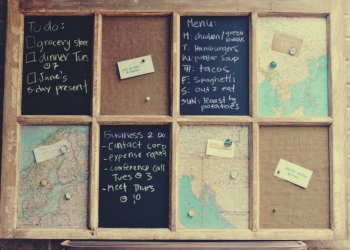 To do:
□ grocery store
□ dinner Tues
@ 7
□ Jane's
b-day present
Menu:
M: chicken/green beans
T: Hamburgers
W: minestr soup
TH: tacos
F: Spaghetti
S: out 2 eat
SUN: Roast &
potatoes
Business 2 Do:
- Contact Corp
- expense report
- conference call
Tues @ 3
- Meet Thurs
@ 10